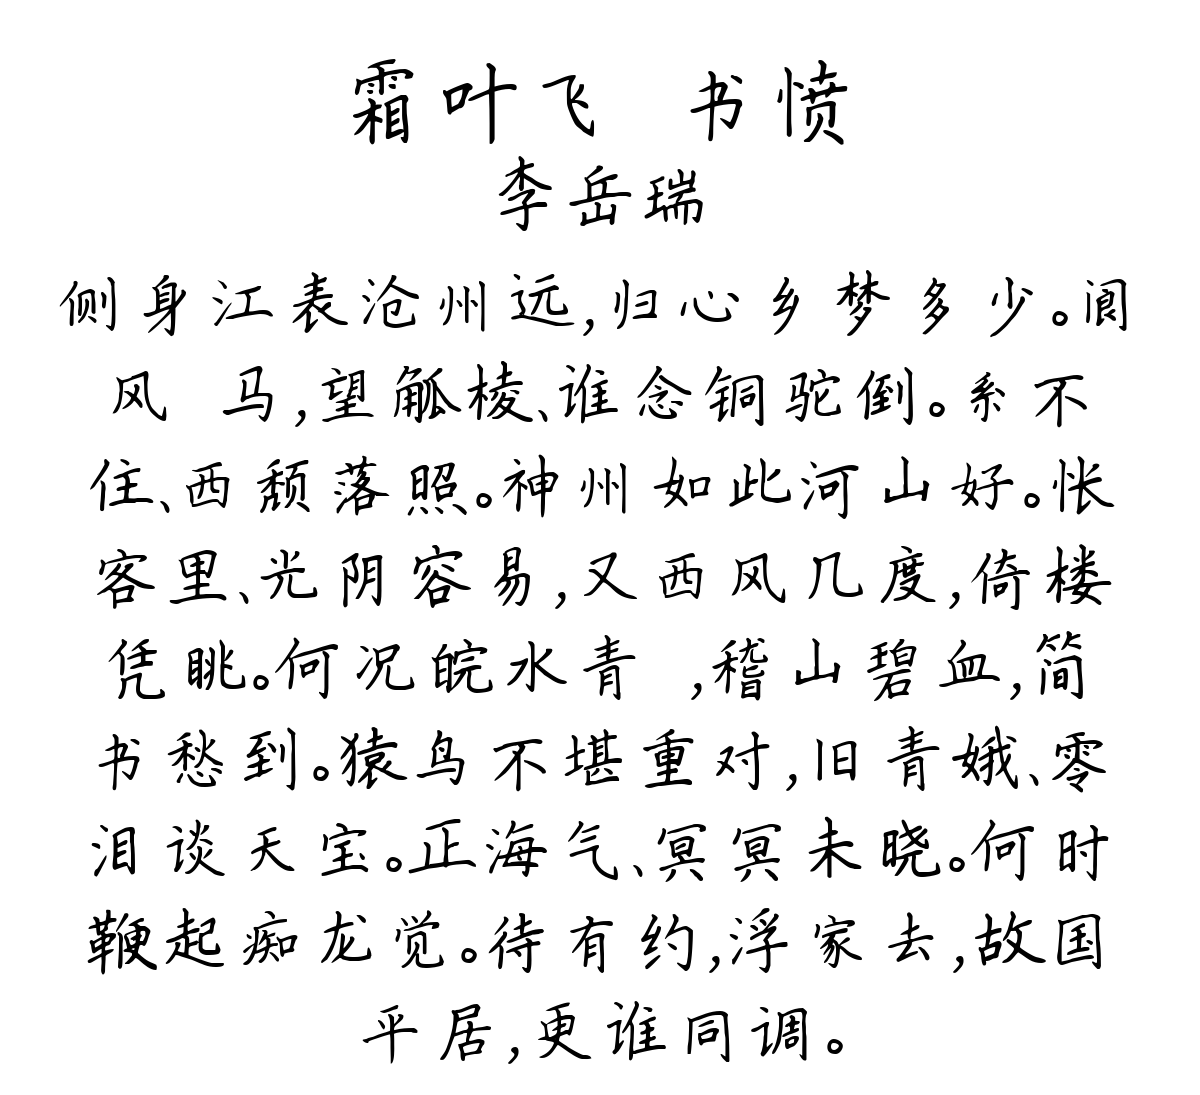 霜叶飞 书愤
李岳瑞
侧身江表沧州远,归心乡梦多少。阆
风 马,望觚棱、谁念铜驼倒。系不
住、西颓落照。神州如此河山好。怅
客里、光阴容易,又西风几度,倚楼
凭眺。何况皖水青 ,稽山碧血,简
书愁到。猿鸟不堪重对,旧青娥、零
泪谈天宝。正海气、冥冥未晓。何时
鞭起痴龙觉。待有约,浮家去,故国
平居,更谁同调。